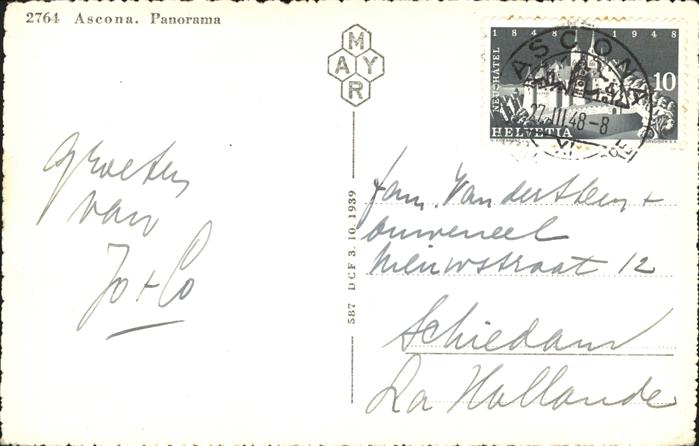 2764 Ascona. Panorama
MAYR
1848 1948
NEUCHÂTEL
10
HELVETIA
ASCONA
27.III.48-8
Groeten
van
Jo + Co
587 DCF 3. 10. 1939
fam. Vandersteen +
Nieuwstraat 12
Schiedam
La Hollande